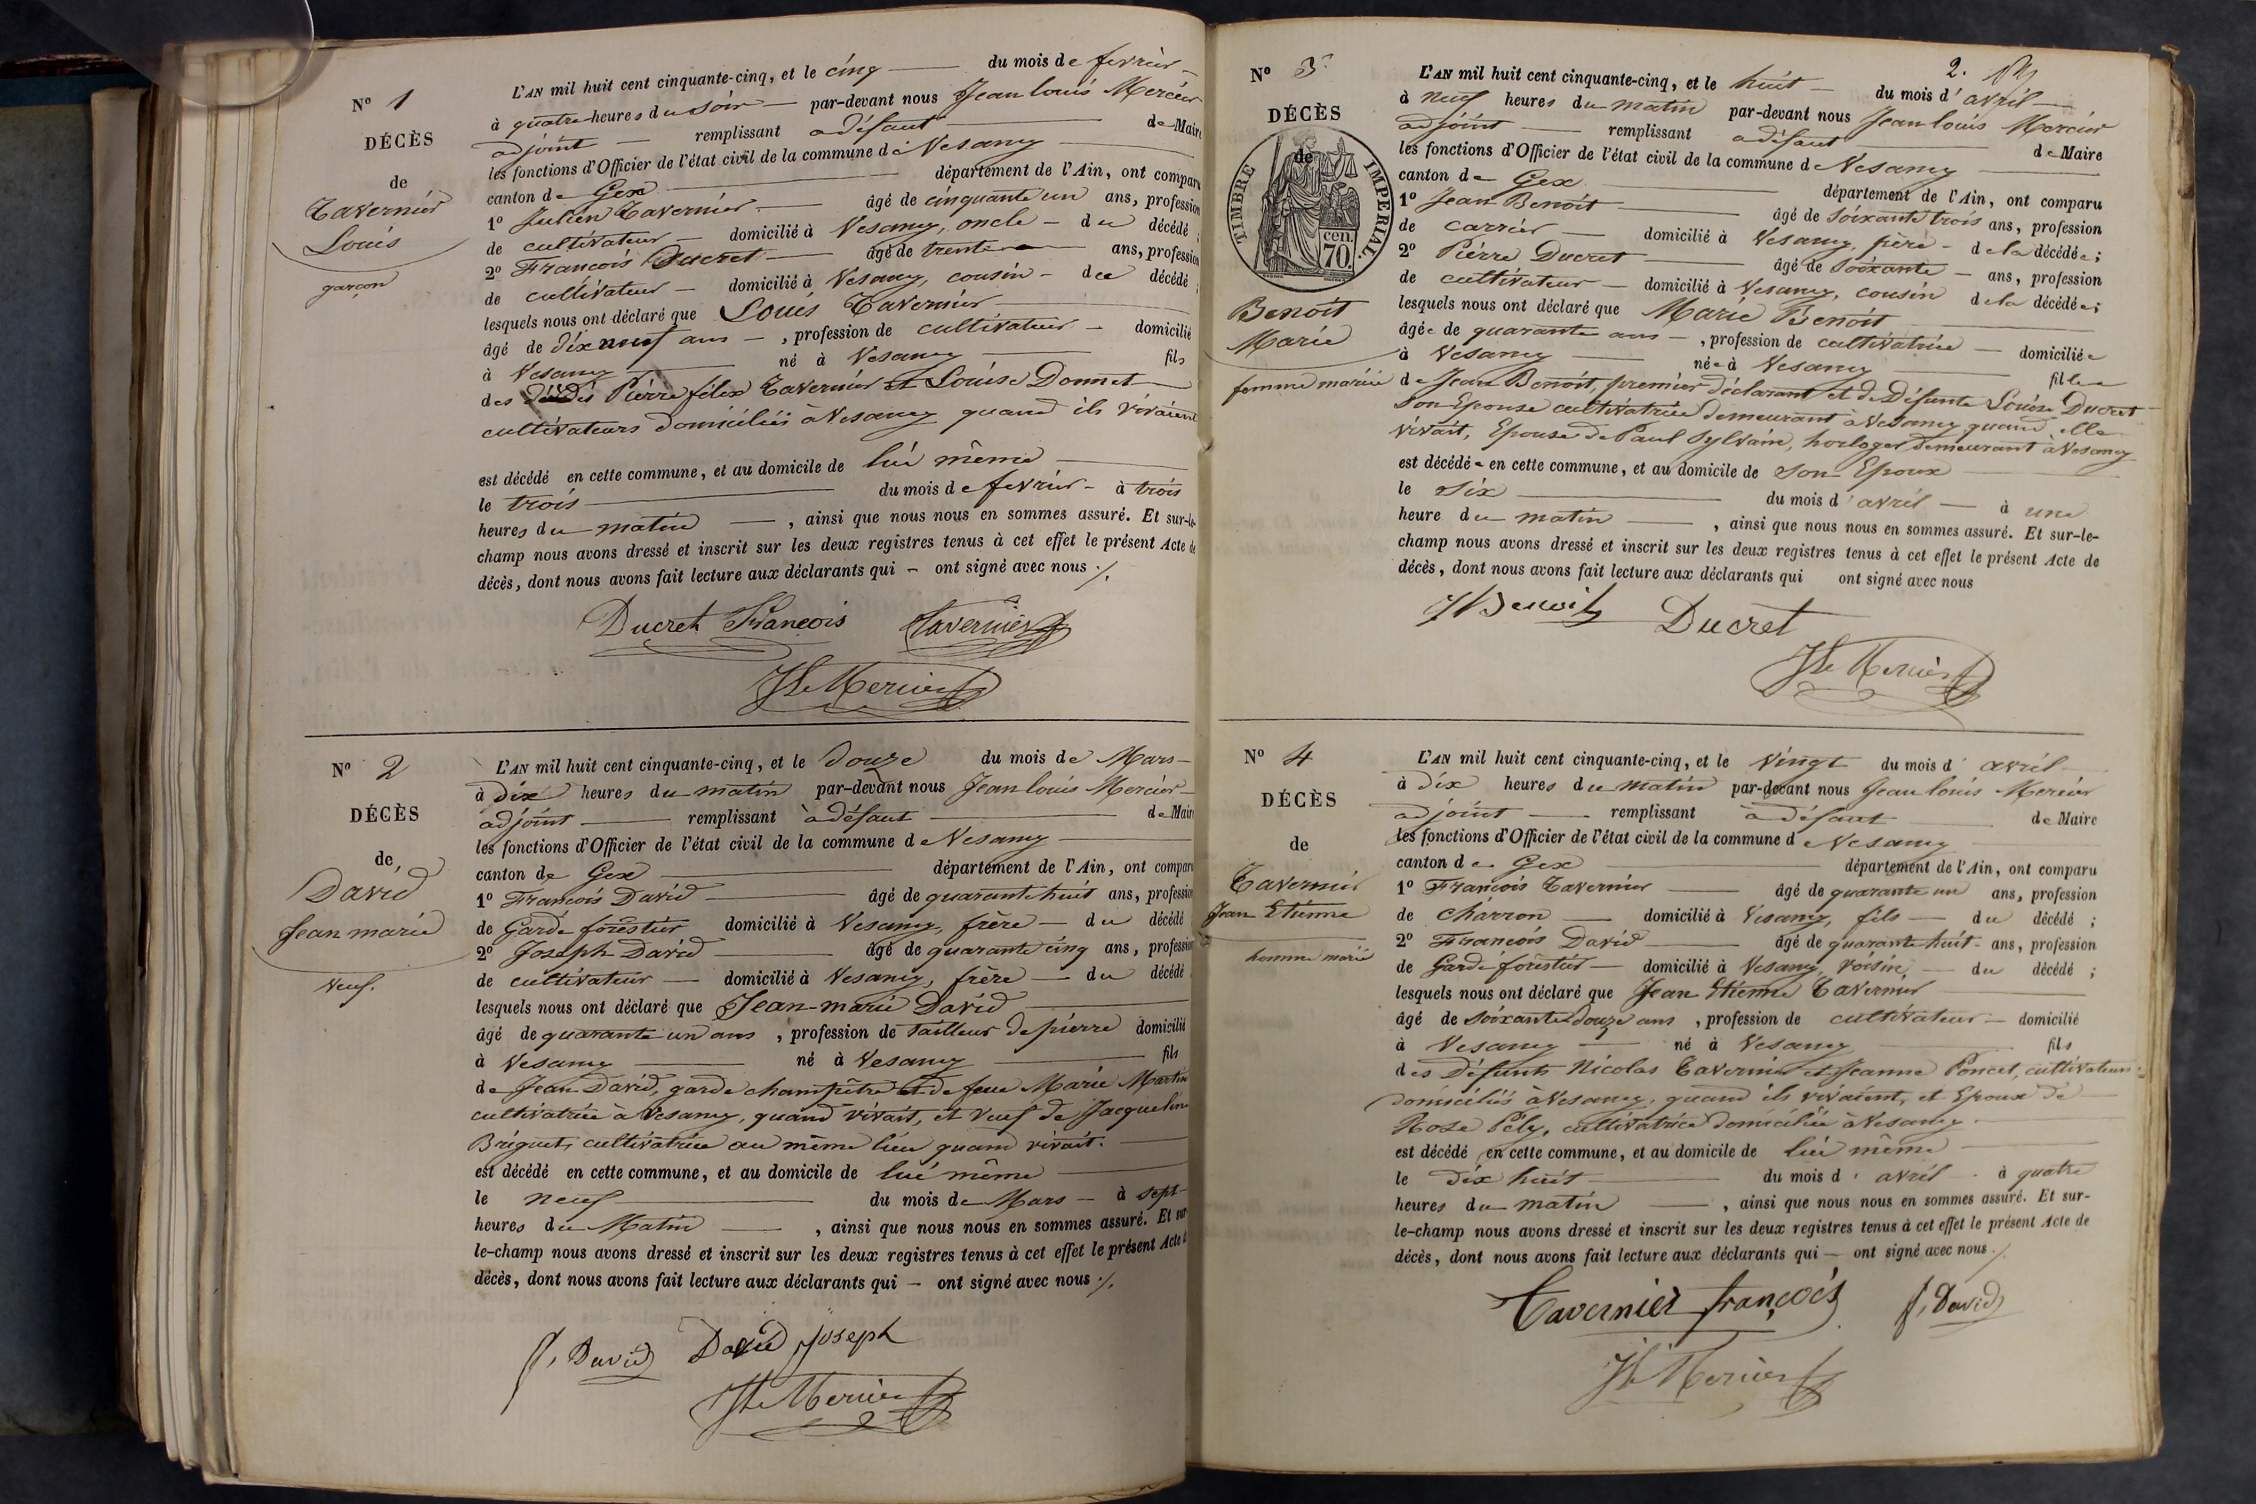 N° 1
DÉCÈS
de
Tavernier
Louis
garçon
L'AN mil huit cent cinquante-cinq, et le cinq du mois de fevrier
à quatre heures du soir par-devant nous Jean louis Mercier
adjoint remplissant a défaut de Maire
les fonctions d'Officier de l'état civil de la commune de Vesancy
canton de Gex département de l'Ain, ont comparu
1° Julien Tavernier âgé de cinquante un ans, profession
de cultivateur domicilié à Vesancy, oncle du décédé ;
2° Francois Ducret âgé de trente ans, profession
de cultivateur domicilié à Vesancy, cousin du décédé ;
lesquels nous ont déclaré que Louis Tavernier
âgé de dix neuf ans, profession de cultivateur domicilié
à Vesancy né à Vesancy fils
des Pierre félix Tavernier et Louise Donnet
cultivateurs domiciliés à Vesancy quand ils vivaient
est décédé en cette commune, et au domicile de lui même
le trois du mois de fevrier à trois
heures du matin, ainsi que nous nous en sommes assuré. Et sur-le-
champ nous avons dressé et inscrit sur les deux registres tenus à cet effet le présent Acte de
décès, dont nous avons fait lecture aux déclarants qui ont signé avec nous ./.
Ducret François Tavernier
JLs Mercier
N° 2
DÉCÈS
de
David
Jean marie
Veuf.
L'AN mil huit cent cinquante-cinq, et le douze du mois de Mars
à dix heures du matin par-devant nous Jean louis Mercier
adjoint remplissant à défaut de Maire
les fonctions d'Officier de l'état civil de la commune de Vesancy
canton de Gex département de l'Ain, ont comparu
1° Francois David âgé de quarante huit ans, profession
de Garde forestier domicilié à Vesancy, frère du décédé
2° Joseph David âgé de quarante cinq ans, profession
de cultivateur domicilié à Vesancy, frère du décédé
lesquels nous ont déclaré que Jean-marie David
âgé de quarante un ans, profession de tailleur de pierre domicilié
à Vesancy né à Vesancy fils
de Jean David, garde champêtre et de feue Marie Martin
cultivatrice à Vesancy, quand vivait, et Veuf de Jacqueline
Briquet, cultivatrice au même lieu quand vivait.
est décédé en cette commune, et au domicile de lui même
le neuf du mois de Mars à sept
heures du Matin, ainsi que nous nous en sommes assuré. Et sur
le-champ nous avons dressé et inscrit sur les deux registres tenus à cet effet le présent Acte de
décès, dont nous avons fait lecture aux déclarants qui ont signé avec nous ./.
f. David David joseph
JLs Mercier
2.
N° 3
DÉCÈS
de
TIMBRE IMPERIAL.
cen.
70.
Benoit
Marie
femme mariée
L'AN mil huit cent cinquante-cinq, et le huit du mois d'avril
à neuf heures du matin par-devant nous Jean louis Mercier
adjoint remplissant a défaut de Maire
les fonctions d'Officier de l'état civil de la commune de Vesancy
canton de Gex département de l'Ain, ont comparu
1° Jean Benoit âgé de soixante trois ans, profession
de carrier domicilié à Vesancy, père de la décédée ;
2° Pierre Ducret âgé de soixante ans, profession
de cultivateur domicilié à Vesancy, cousin de la décédée ;
lesquels nous ont déclaré que Marie Benoit
âgée de quarante ans, profession de cultivatrice domiciliée
à Vesancy née à Vesancy fille
de Jean Benoit, premier déclarant et de Défunte Louise Ducret
son Epouse cultivatrice demeurant à Vesancy quand elle
vivait, Epouse de Paul Sylvain, horloger demeurant à Vesancy
est décédée en cette commune, et au domicile de son Epoux
le six du mois d'avril à une
heure du matin, ainsi que nous nous en sommes assuré. Et sur-le-
champ nous avons dressé et inscrit sur les deux registres tenus à cet effet le présent Acte de
décès, dont nous avons fait lecture aux déclarants qui ont signé avec nous
Benoit Ducret
JLs Mercier
N° 4
DÉCÈS
de
Tavernier
Jean Etienne
homme marié
L'AN mil huit cent cinquante-cinq, et le vingt du mois d'avril
à dix heures du matin par-devant nous Jean louis Mercier
adjoint remplissant à défaut de Maire
les fonctions d'Officier de l'état civil de la commune de Vesancy
canton de Gex département de l'Ain, ont comparu
1° Francois Tavernier âgé de quarante un ans, profession
de charron domicilié à Vesancy, fils du décédé ;
2° Francois David âgé de quarante huit ans, profession
de Garde forestier domicilié à Vesancy, voisin, du décédé ;
lesquels nous ont déclaré que Jean Etienne Tavernier
âgé de soixante douze ans, profession de cultivateur domicilié
à Vesancy né à Vesancy fils
des Défunts Nicolas Tavernier et Jeanne Poncet, cultivateurs
domiciliés à Vesancy, quand ils vivaient, et Epoux de
Rose Pély, cultivatrice domiciliée à Vesancy.
est décédé en cette commune, et au domicile de lui même
le dix huit du mois d'avril à quatre
heures du matin, ainsi que nous nous en sommes assuré. Et sur-
le-champ nous avons dressé et inscrit sur les deux registres tenus à cet effet le présent Acte de
décès, dont nous avons fait lecture aux déclarants qui ont signé avec nous ./.
Tavernier françois f. David
JLs Mercier